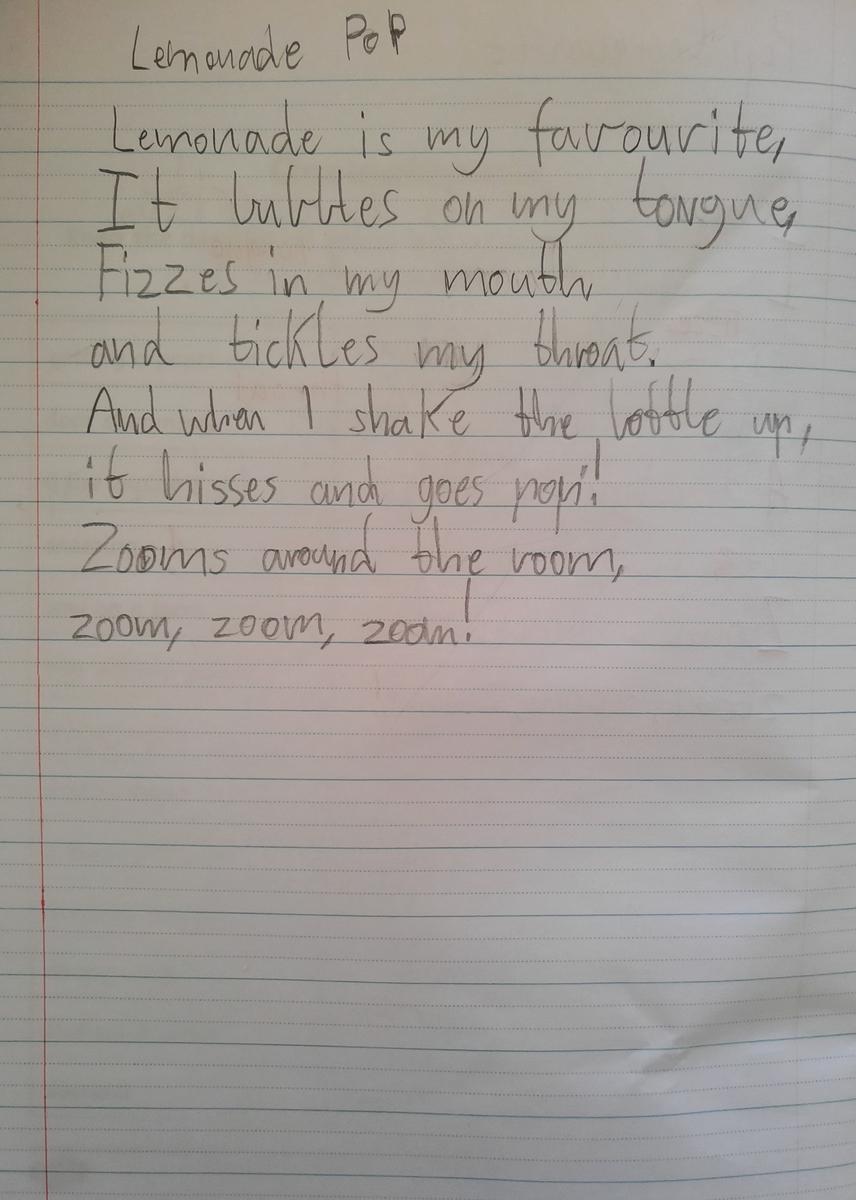 Lemonade PoP
Lemonade is my favourite,
It bubbles on my tongue,
Fizzes in my mouth,
and tickles my throat.
And when I shake the bottle up,
it hisses and goes pop!
Zooms around the room,
zoom, zoom, zoom!